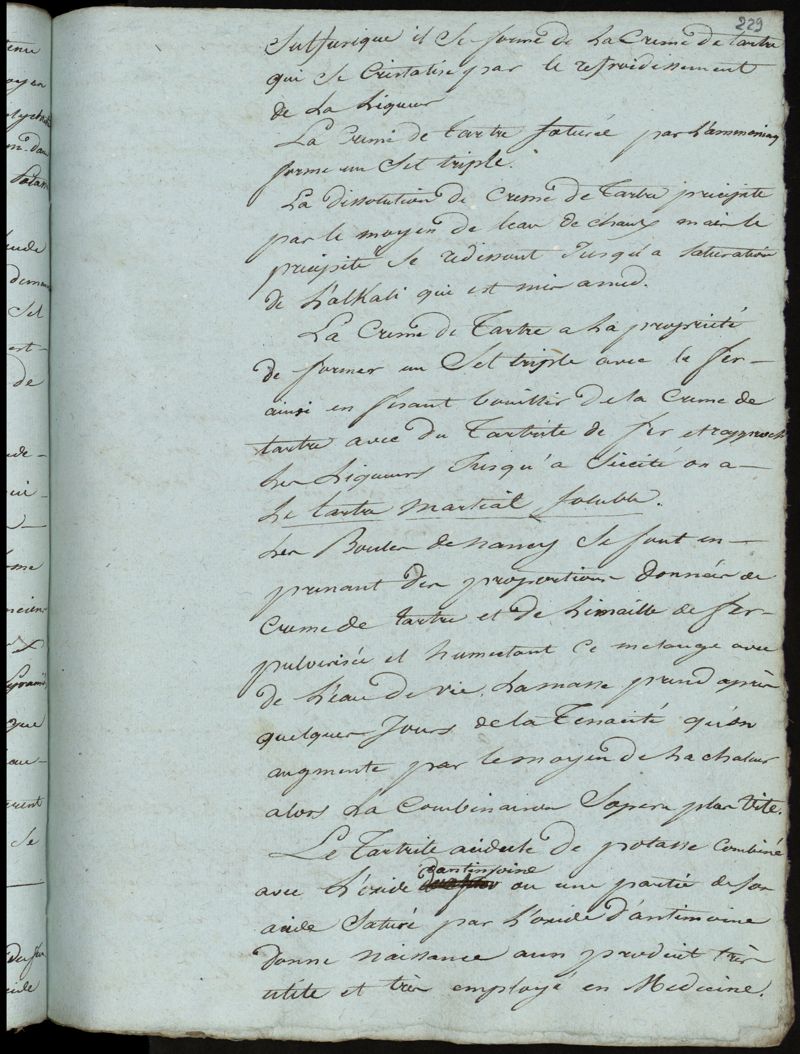 229
Sulfurique il Se forme de La Creme de tartre
qui se Cristalise par le refroidissement
de La Liqueur
La Creme de Tartre Saturée par L'ammoniaq
forme un Sel triple.
La dissolution de Creme de Tartre precipite
par le moyen de leau de chaux mais le
precipité Se redissout Jusqu'a Saturation
de L'alkali qui est mis anud.
La Creme de Tartre a La propriété
de former un Sel triple avec le fer—
ainsi en fesant bouillir de la Creme de
tartre avec du Tartrite de fer et rapproch
Les Liqueurs Jusqu'a Siccité on a—
Le tartre martial Soluble.
Les Boules de nancy Se font en—
prenant des proportions données de
Creme de tartre et de Limaille de fer—
pulvérisée et humectant Ce melange avec
de L'eau de vie, Lamasse prend après
quelques Jours de la Tenacité qu'on
augmente par le moyen de La chaleur
alors La Combinaison Sopere plus Vite.
Le Tartrite acidule de potasse Combiné
avec L'oxide dantimoine ou une partie de Son
acide Saturé par L'oxide d'antimoine
donne naissance aun produit très
utile et très employé en Medecine.
tenu
oyen
Sel
est—
de
ue
Se